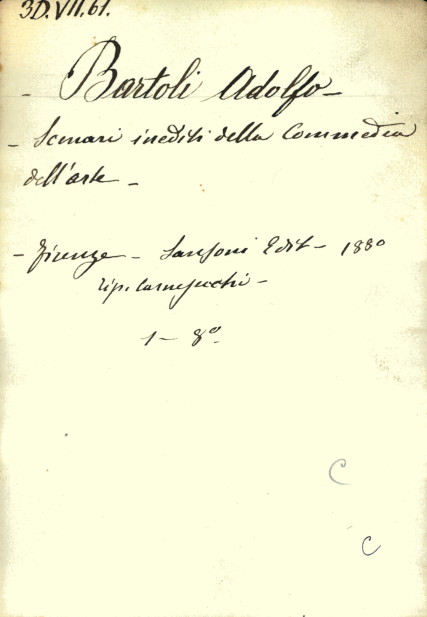 3D.VII.61.
- Bartoli Adolfo -
- Scenari inediti della Commedia
dell'arte -
- Firenze - Sansoni Edit - 1880
Tip. Carnesecchi -
1 - 8º
C
C